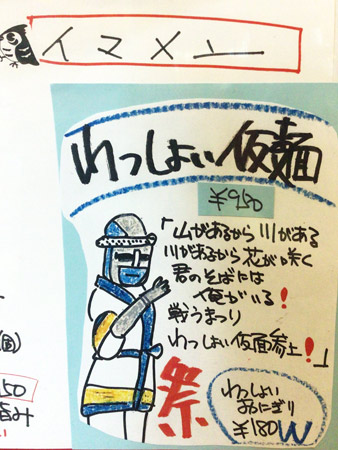 イマメン
わっしょい仮麺
¥950
「山があるから川がある
川があるから花が咲く
君のそばには
俺がいる!
戦うまつり
わっしょい仮面参上!」
祭
わっしょい
おにぎり
¥180
個)
50